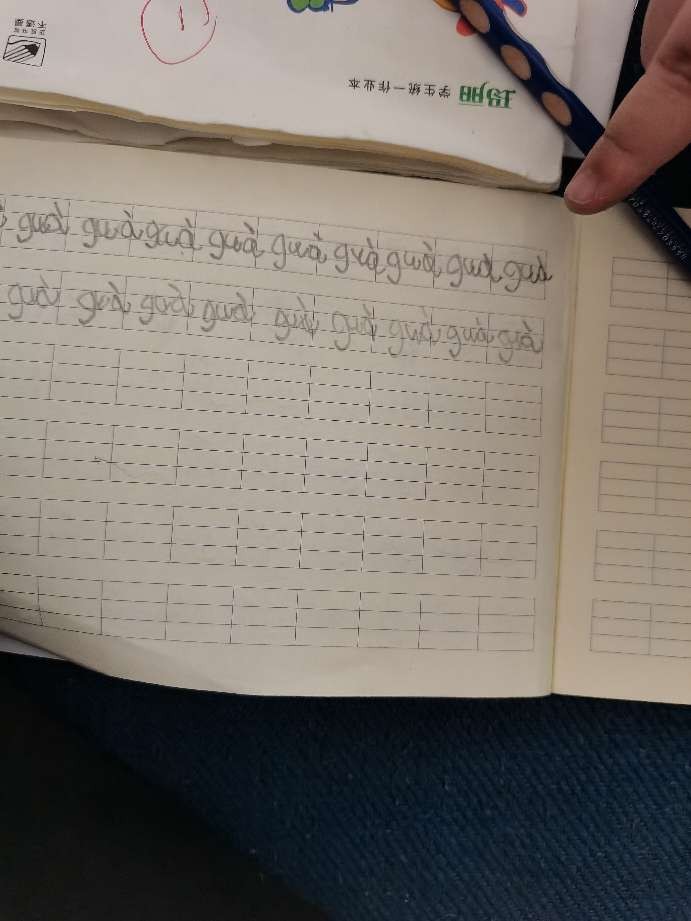 1
培阳 学生统一作业本
guà guà guà guà guà guà guà guà guà
guà guà guà guà guà guà guà guà guà